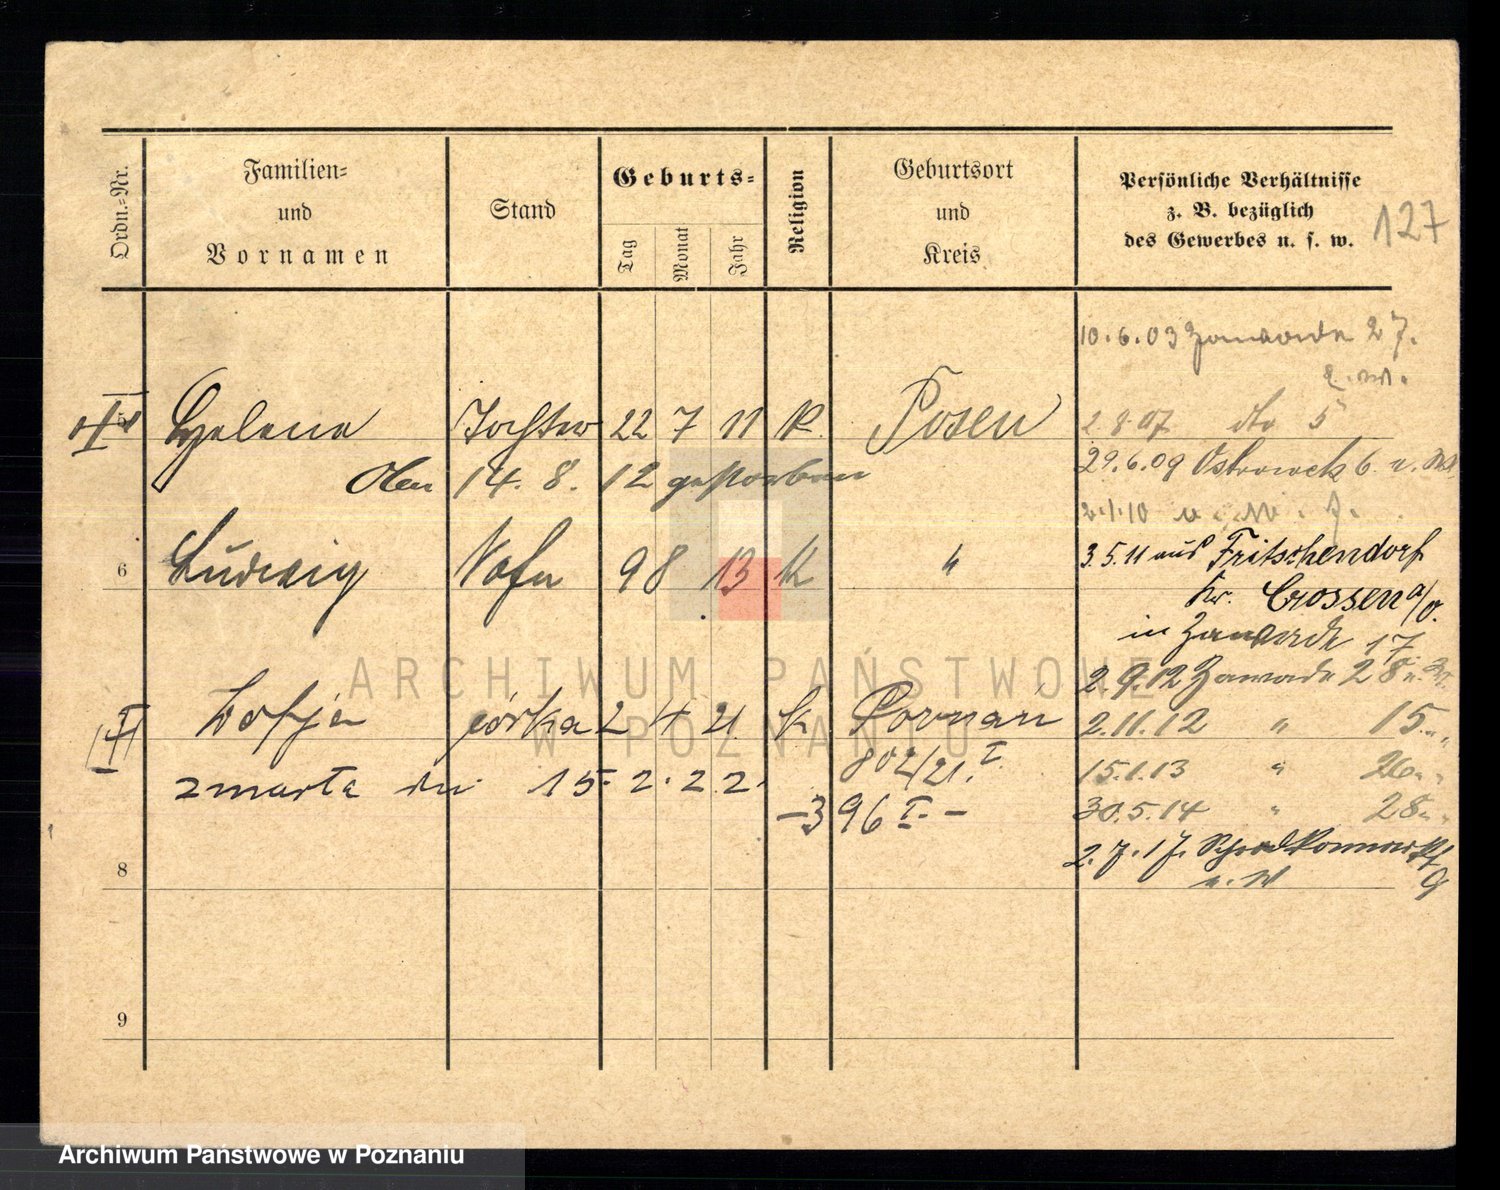 Ordn.-Nr.
Familien-
und
Vornamen
Stand
Geburts-
Tag
Monat
Jahr
Religion
Geburtsort
und
Kreis
Persönliche Verhältnisse
z. B. bezüglich
des Gewerbes u. s. w.
127
10.6.03 Zawade 27.
5 Helena Tochter 22 7 11 K. Posen
2.8.07 dto 5
14. 8. 12 gestorben
29.6.09 Ostrowek 6.
2.1.10
6 Ludwig Sohn 9 8 13 K "
3.5.11 aus Fritschendorf
Kr. Crossen a/O.
in Zawade 17
2.9.12 Zawade 28
Zofja córka 2 4 21 k Poznań
2.11.12 " 15
802/21. I
15.1.13 " 26
zmarła dn 15. 2. 22.
-396 I.-
30.5.14 " 28
2.7.17.
8
9
ARCHIWUM PAŃSTWOWE
W POZNANIU
Archiwum Państwowe w Poznaniu